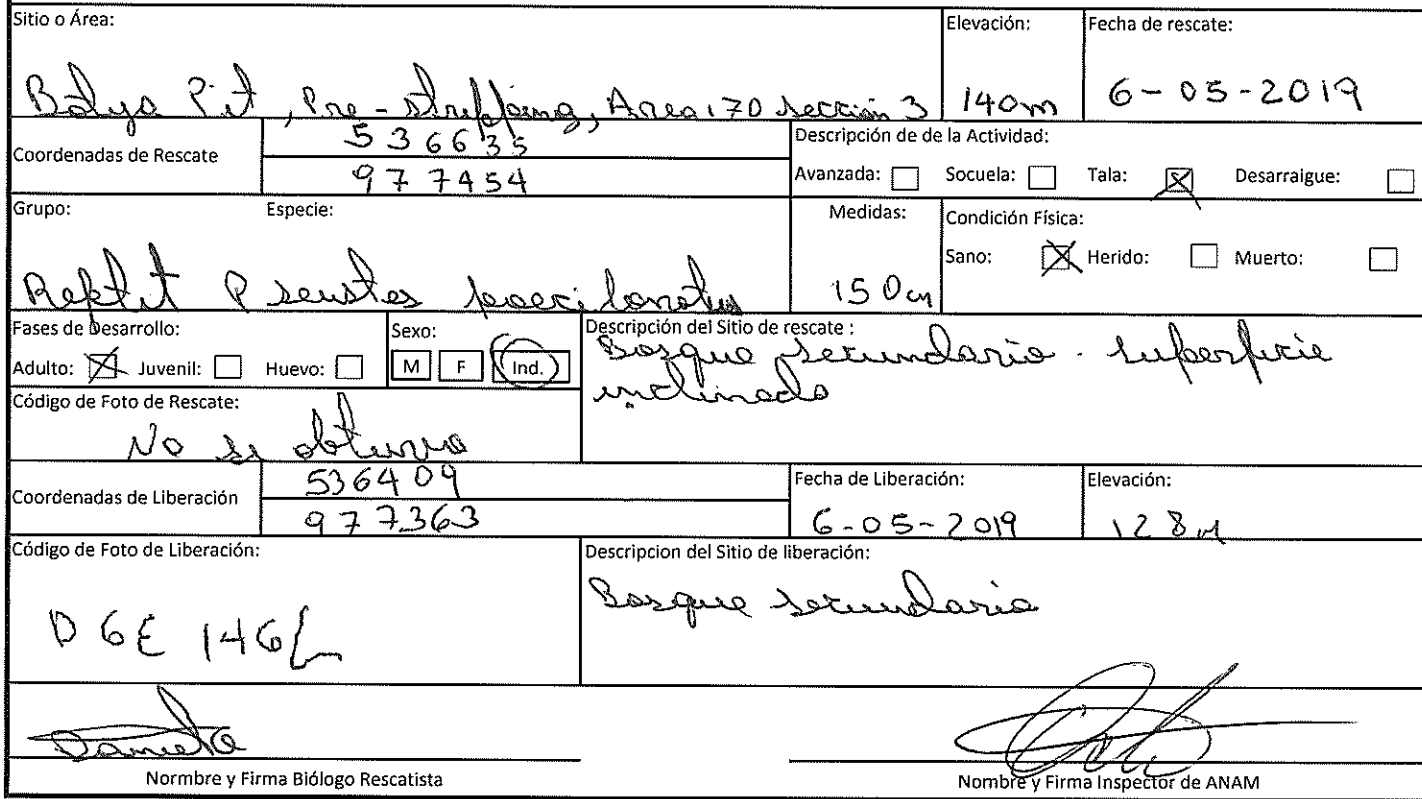 Sitio o Área:
Elevación:
Fecha de rescate:
Botija Pit, Pre-stripping, Area 170 sección 3
140m
6-05-2019
Coordenadas de Rescate
536635
977454
Descripción de de la Actividad:
Avanzada: Socuela: Tala: Desarraigue:
Grupo: Especie:
Medidas:
Condición Física:
Sano: Herido: Muerto:
Reptil Pseustes poecilonotus
150cm
Fases de Desarrollo:
Adulto: Juvenil: Huevo:
Sexo:
M F Ind.
Descripción del Sitio de rescate :
Bosque secundario. superficie
inclinada
Código de Foto de Rescate:
No se obtuvo
Coordenadas de Liberación
536409
977363
Fecha de Liberación:
6-05-2019
Elevación:
128m
Código de Foto de Liberación:
DGE 146L
Descripcion del Sitio de liberación:
Bosque secundario
Normbre y Firma Biólogo Rescatista
Nombre y Firma Inspector de ANAM